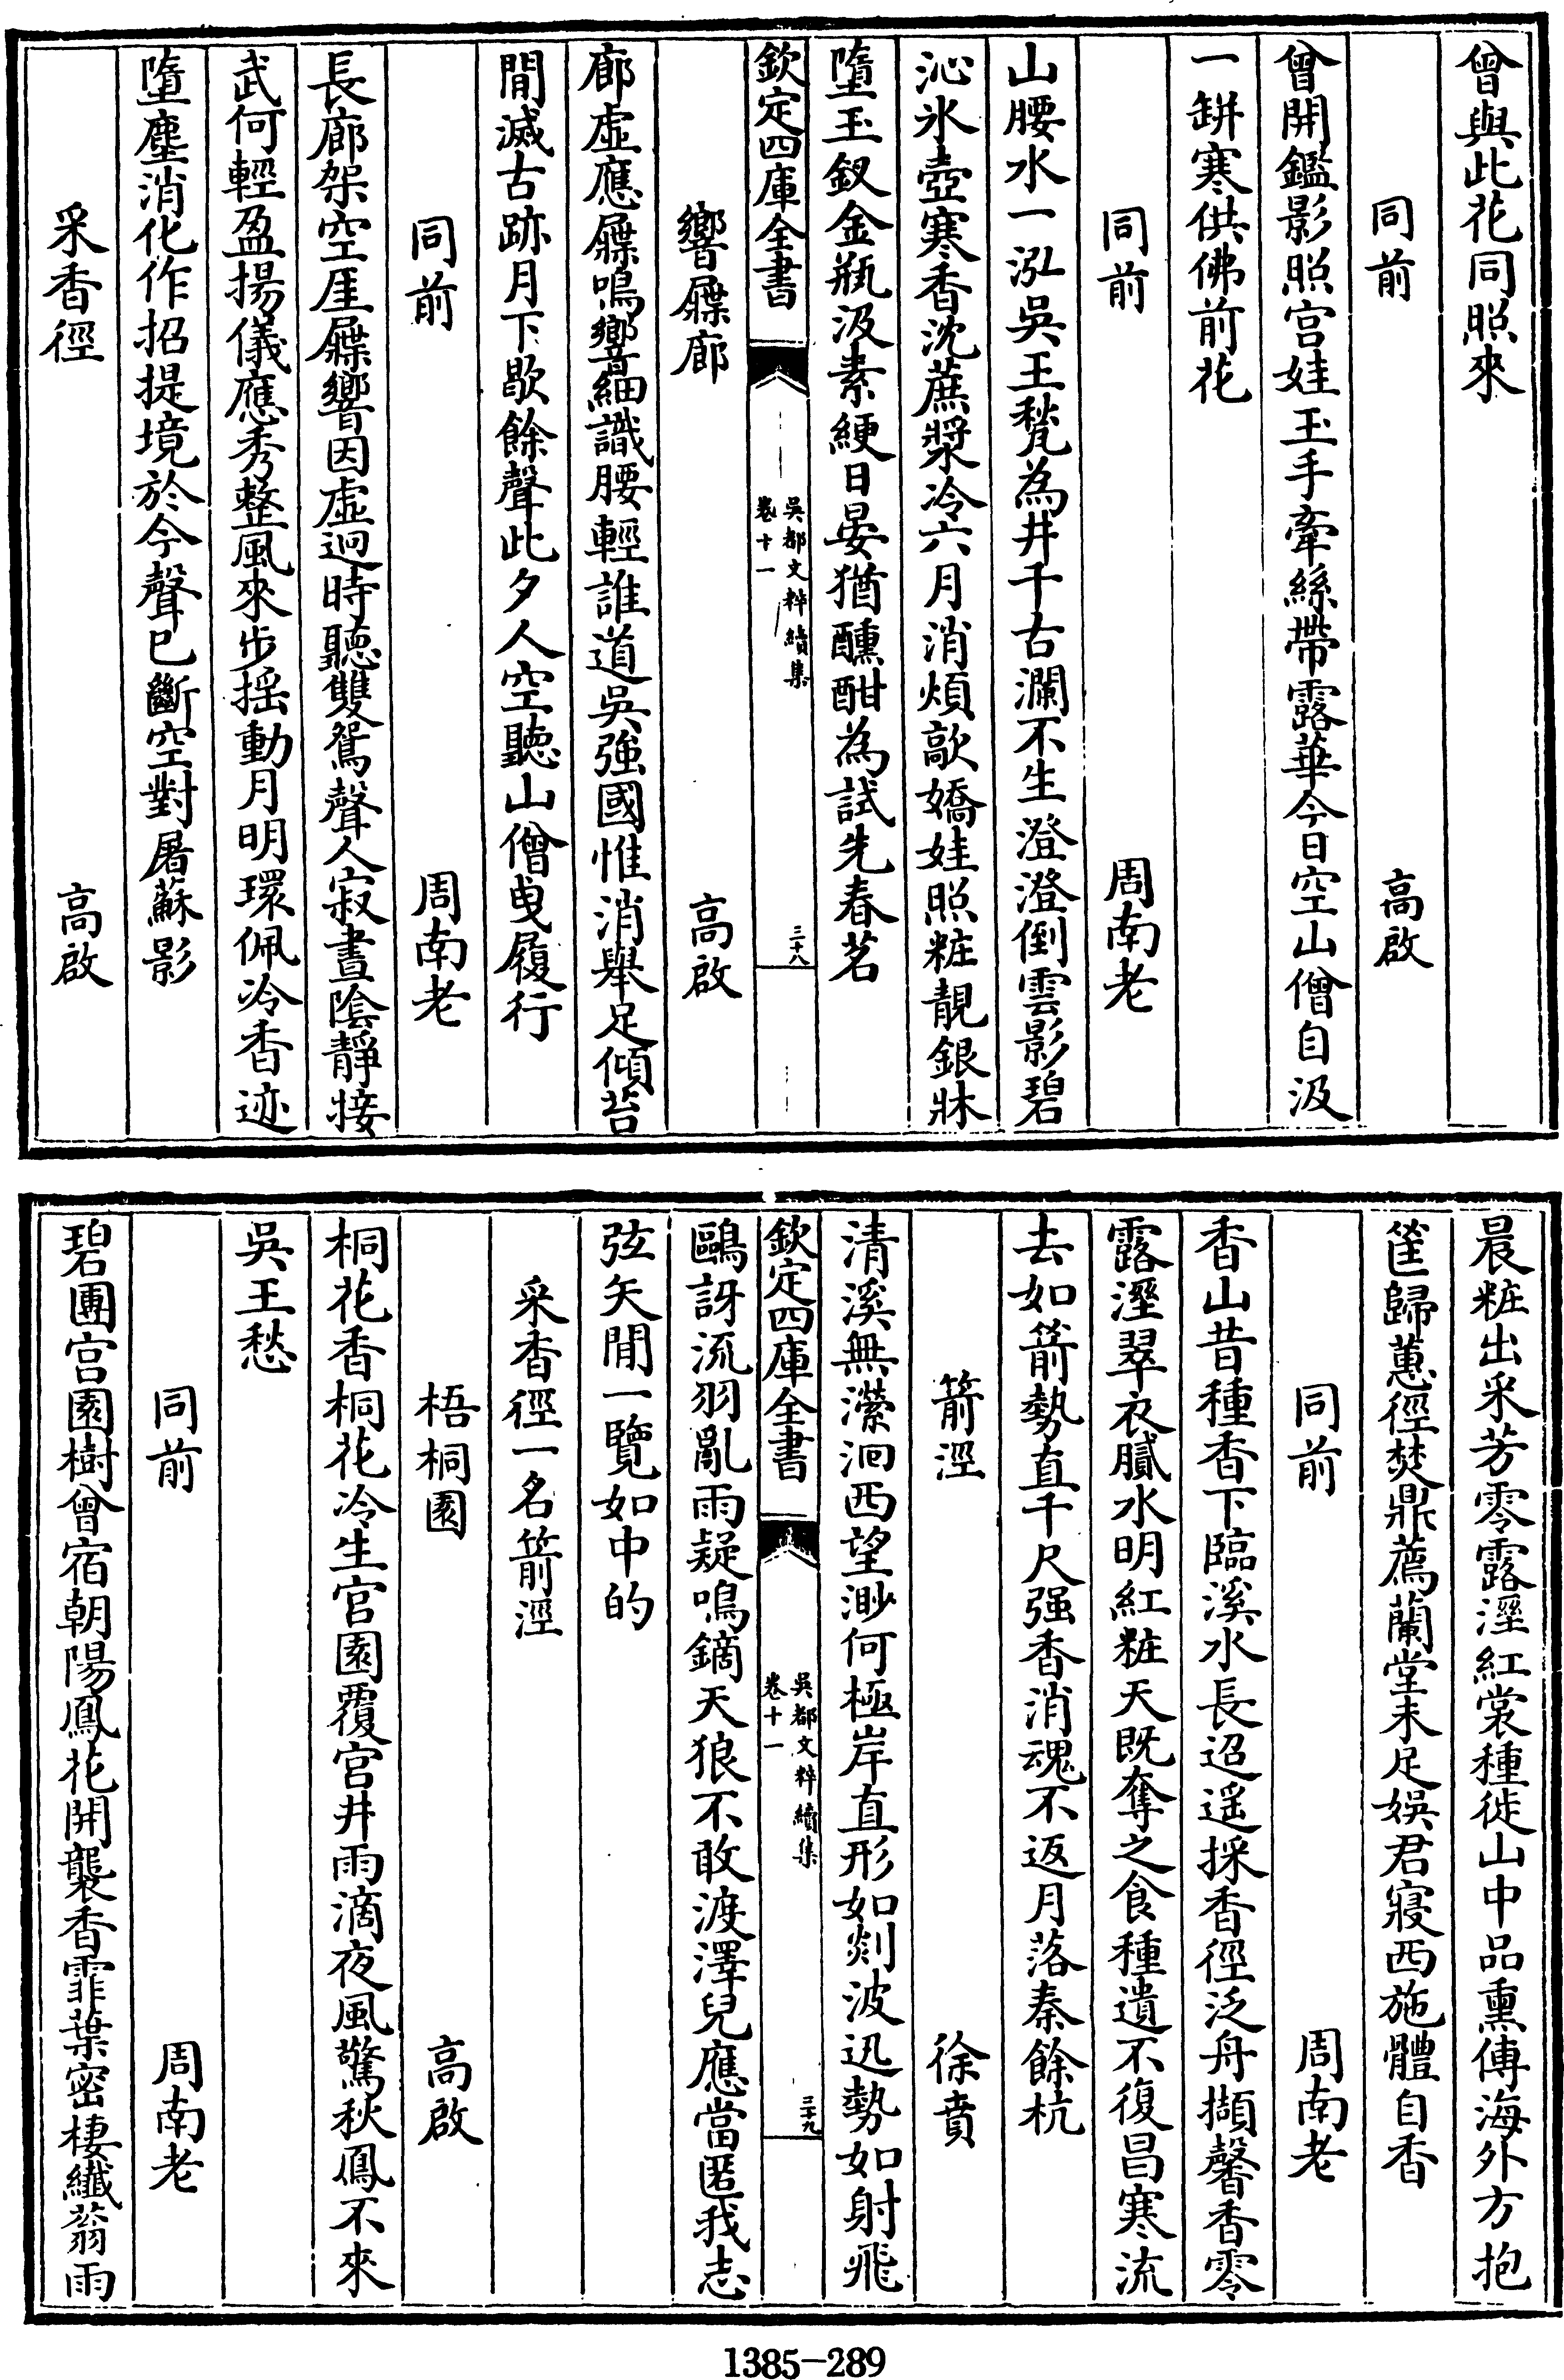 曾與此花同照來
同前　高啟
曾開鑑影照宫娃玉手牽絲帶露華今日空山僧自汲
一缾寒供佛前花
同前　周南老
山腰水一泓吳王甃為井千古瀾不生澄澄倒雲影碧
沁氷壺寒香沈蔗漿冷六月消煩歊嬌娃照粧靚銀牀
墮玉釵金瓶汲素綆日晏猶醺酣為試先春茗
欽定四庫全書
吳都文粹續集
卷十一
三十八
響屧廊　高啟
廊虛應屧鳴響細識腰輕誰道吳強國惟消舉足傾苔
閒滅古跡月下歇餘聲此夕人空聽山僧曵履行
同前　周南老
長廊架空厓屧響因虛迥時聽雙鴛聲人寂晝陰靜接
武何輕盈揚儀應秀整風來步揺動月明環佩冷香迹
墮塵消化作招提境於今聲已斷空對屠蘇影
采香徑　高啟
晨粧出采芳零露溼紅裳種徙山中品熏傳海外方抱
筐歸蕙徑焚鼎薦蘭堂未足娛君寢西施體自香
同前　周南老
香山昔種香下臨溪水長迢遥採香徑泛舟擷馨香零
露溼翠衣膩水明紅粧天既奪之食種遺不復昌寒流
去如箭勢直千尺强香消魂不返月落秦餘杭
箭涇　徐賁
清溪無瀠洄西望渺何極岸直形如剡波迅勢如射飛
欽定四庫全書
吳都文粹續集
卷十一
三十九
鷗訝流羽亂雨疑鳴鏑天狼不敢渡澤兒應當匿我志
弦矢閒一覽如中的
采香徑一名箭涇
梧桐園　高啟
桐花香桐花冷生宫園覆宫井雨滴夜風驚秋鳳不來
吳王愁
同前　周南老
碧圑宫園樹曾宿朝陽鳳花開襲香霏葉密棲纖蓊雨
1385-289